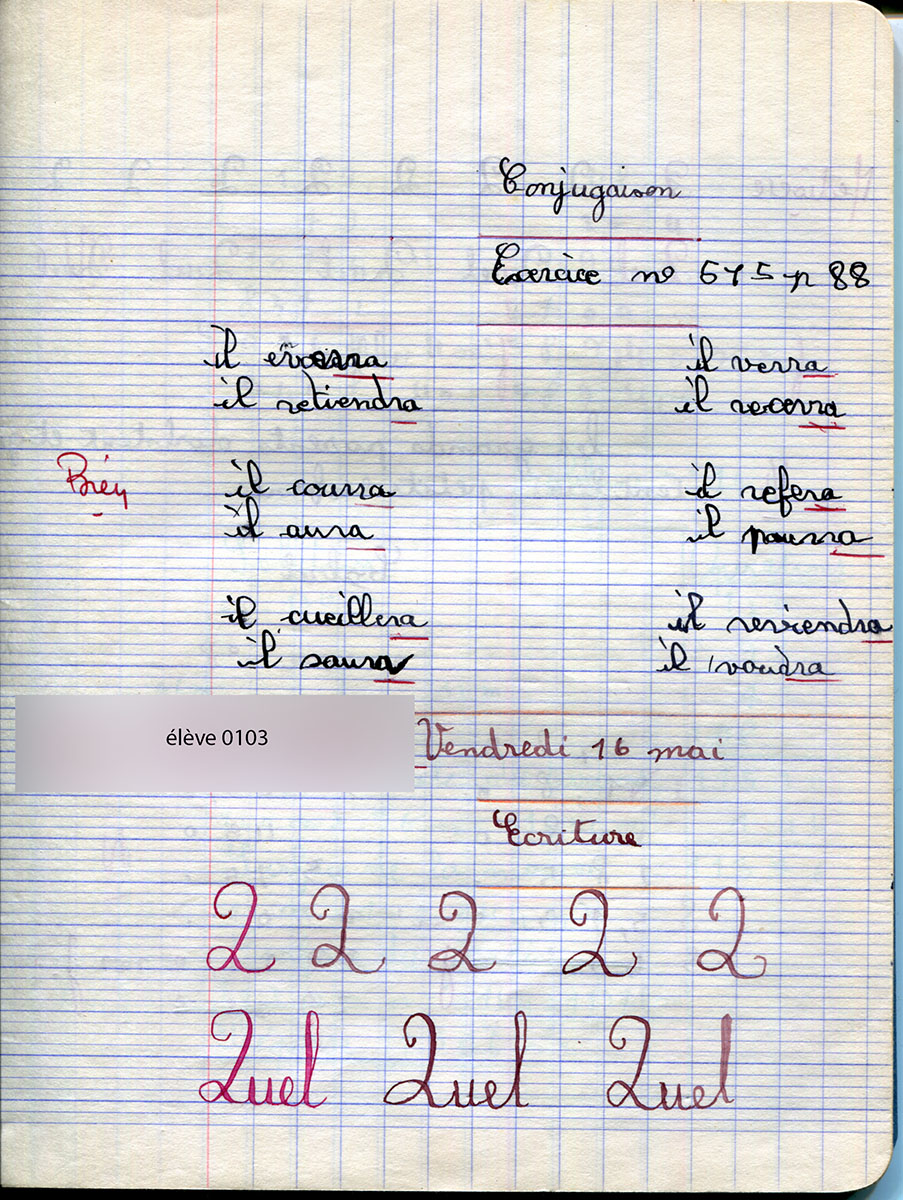 Conjugaison
Exercice no 675 p 88
il verra
il retiendra
il recevra
Bien
il courra il refera
il aura il pourra
il cueillera il reviendra
il saura il voudra
élève 0103
Vendredi 16 mai
Ecriture
2 2 2 2 2
Quel Quel Quel